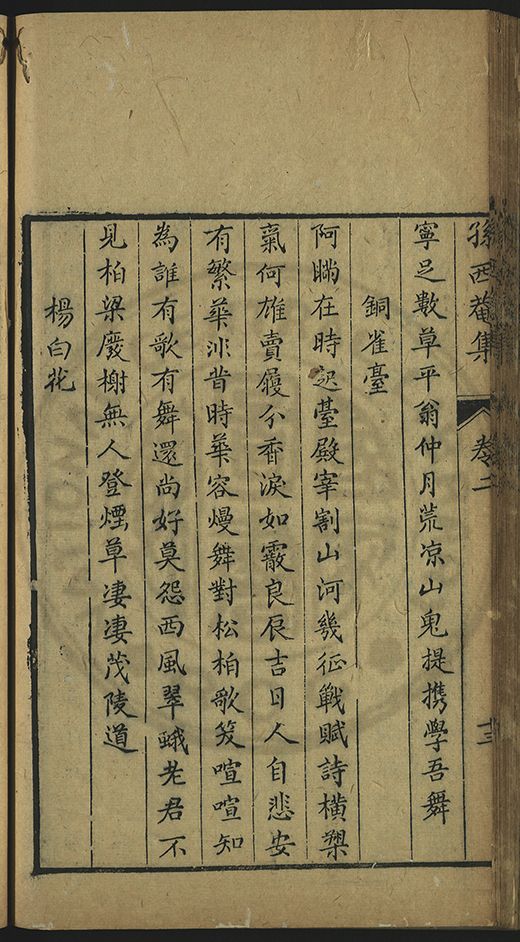 孫西菴集 卷二 十三
寧足數草平翁仲月荒凉山鬼提携學吾舞
銅雀臺
阿瞞在時起臺殿宰割山河幾征戰賦詩横槊
氣何雄賣履分香淚如霰良辰吉日人自悲安
有繁華淛昔時華容熳舞對松柏歌笑喧喧知
為誰有歌有舞還尚好莫怨西風翠蛾老君不
見柏梁廢榭無人登煙草凄凄茂陵道
楊白花